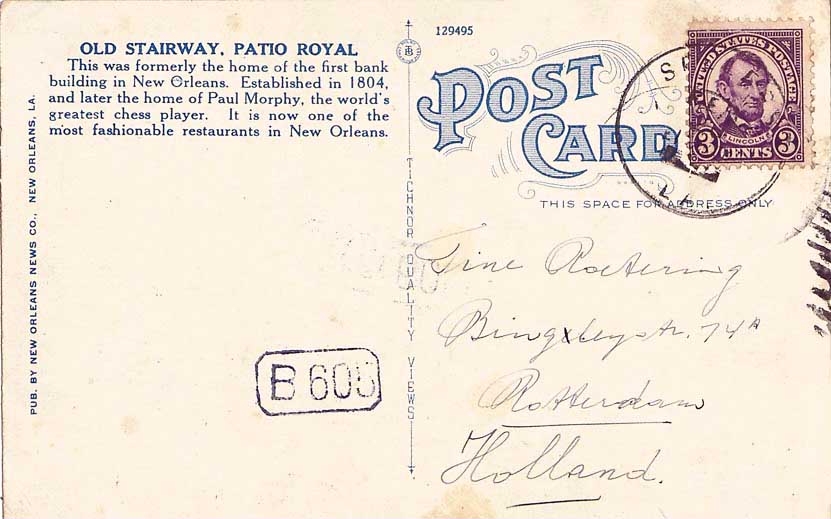 OLD STAIRWAY, PATIO ROYAL
This was formerly the home of the first bank
building in New Orleans. Established in 1804,
and later the home of Paul Morphy, the world's
greatest chess player. It is now one of the
most fashionable restaurants in New Orleans.
PUB. BY NEW ORLEANS NEWS CO., NEW ORLEANS, LA.
B 605
TICHNOR QUALITY VIEWS
129495
POST
CARD
THIS SPACE FOR ADDRESS ONLY
UNITED STATES POSTAGE
LINCOLN
3 CENTS 3
LA.
Tine Roetering
74A
Rotterdam
Holland.